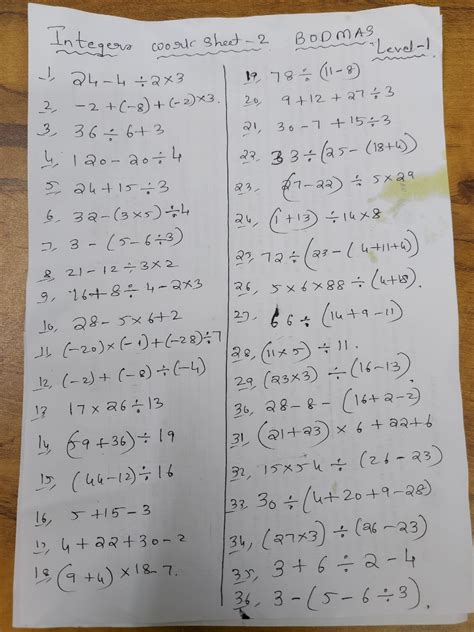 Integers work sheet-2 BODMAS
Level-1
1, 24-4÷2×3
2, -2+(-8)+(-2)×3.
3, 36÷6+3
4, 120-20÷4
5, 24+15÷3
6, 32-(3×5)÷4
7, 3-(5-6÷3)
8, 21-12÷3×2
9, 16+8÷4-2×3
10, 28-5×6+2
11, (-20)×(-1)+(-28)÷7
12, (-2)+(-8)÷(-4)
13 17×26÷13
14, (59+36)÷19
15, (44-12)÷16
16, 5+15-3
17, 4+22+30-2
18, (9+4)×18-7.
19, 78÷(11-8)
20, 9+12+27÷3
21, 30-7+15÷3
22, 33÷(25-(18+4))
23, (27-22)÷5×29
24, (1+13)÷14×8
25, 72÷(23-(4+11+4))
26, 5×6×88÷(4+18).
27, 66÷(14+9-11)
28, (11×5)÷11.
29, (23×3)÷(16-13)
30, 28-8-(16+2-2)
31, (21+23)×6+22+6
32, 15×54÷(26-23)
33, 30÷(4+20+9-28)
34, (27×3)÷(26-23)
35, 3+6÷2-4
36, 3-(5-6÷3).